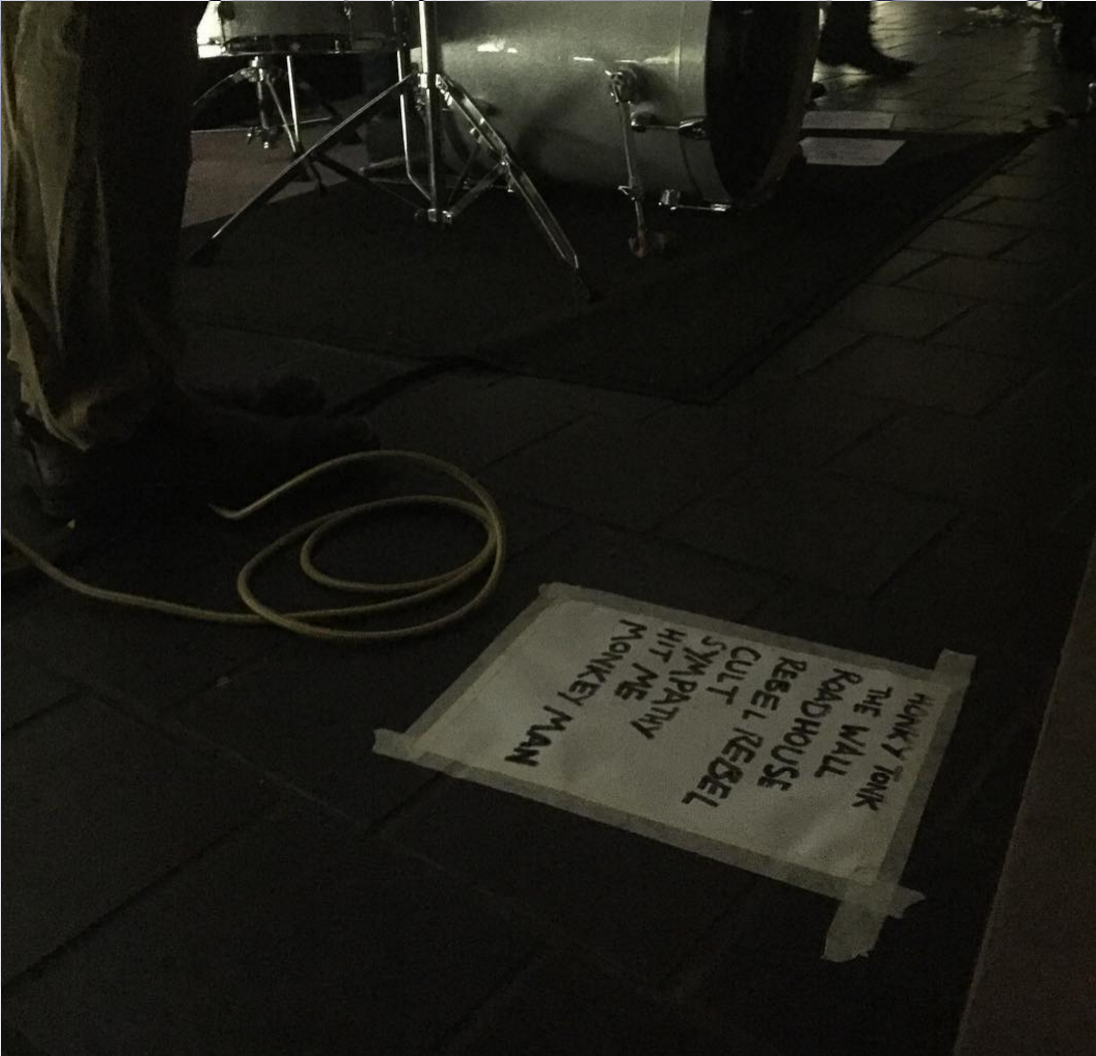 HONKY TONK
THE WALL
ROADHOUSE
REBEL REBEL
CULT
SYMPATHY
HIT ME
MONKEY MAN